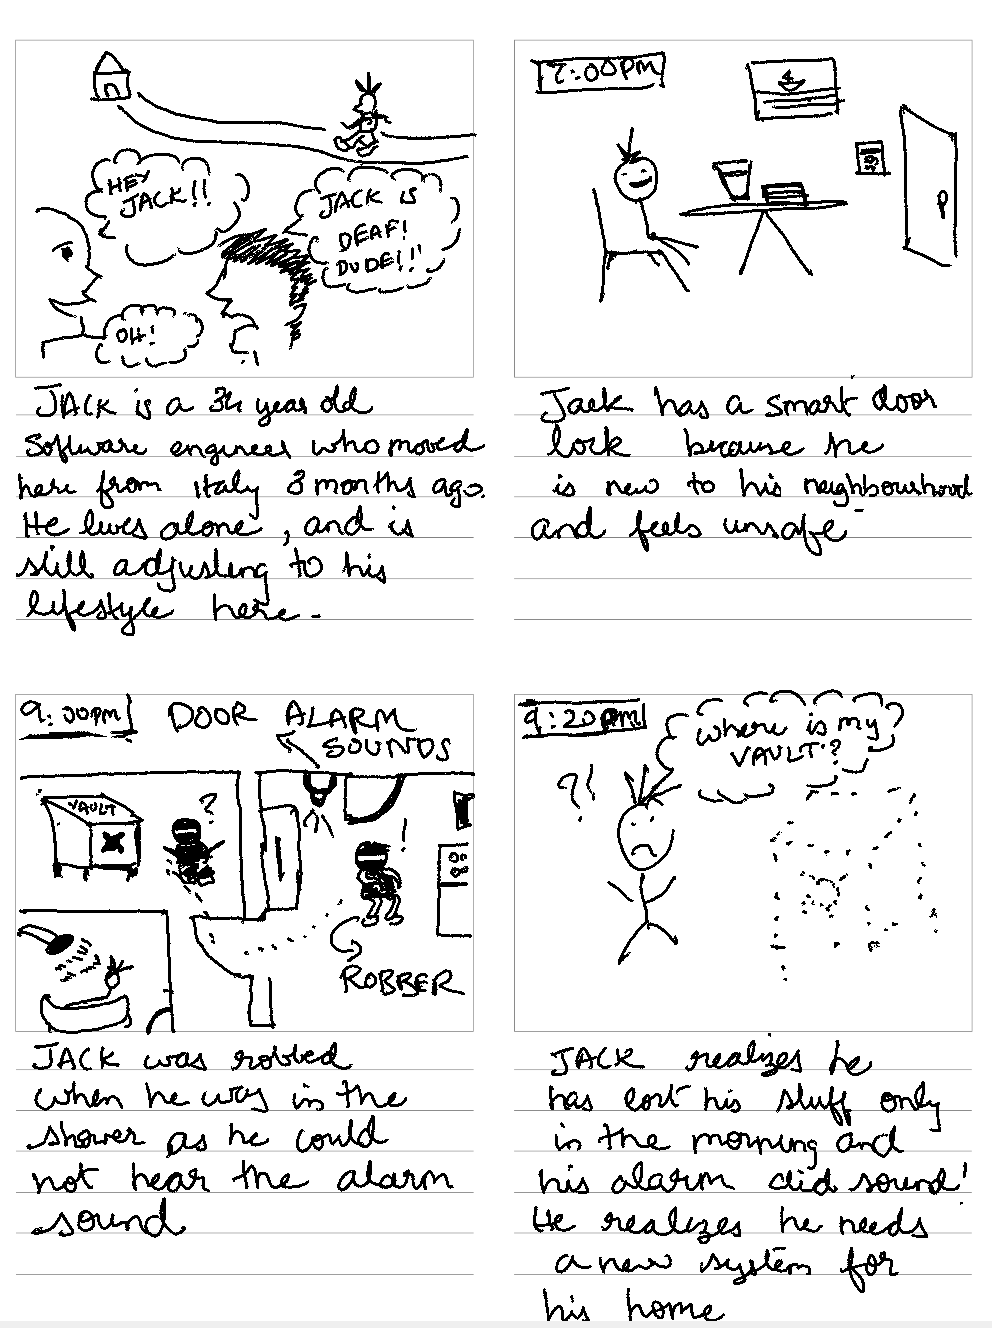 HEY
JACK!!
JACK IS
DEAF!
DUDE!!
OH!
JACK is a 34 year old
Software engineer who moved
here from Italy 3 months ago.
He lives alone, and is
still adjusting to his
lifestyle here.
7:00PM
Jack has a smart door
lock because he
is new to his neighbourhood
and feels unsafe
9:00PM
DOOR ALARM
SOUNDS
VAULT
?
!
ROBBER
JACK was robbed
when he was in the
shower as he could
not hear the alarm
sound
9:20PM
where is my
VAULT?
?!
JACK realizes he
has lost his stuff only
in the morning and
his alarm did sound!
He realizes he needs
a new system for
his home